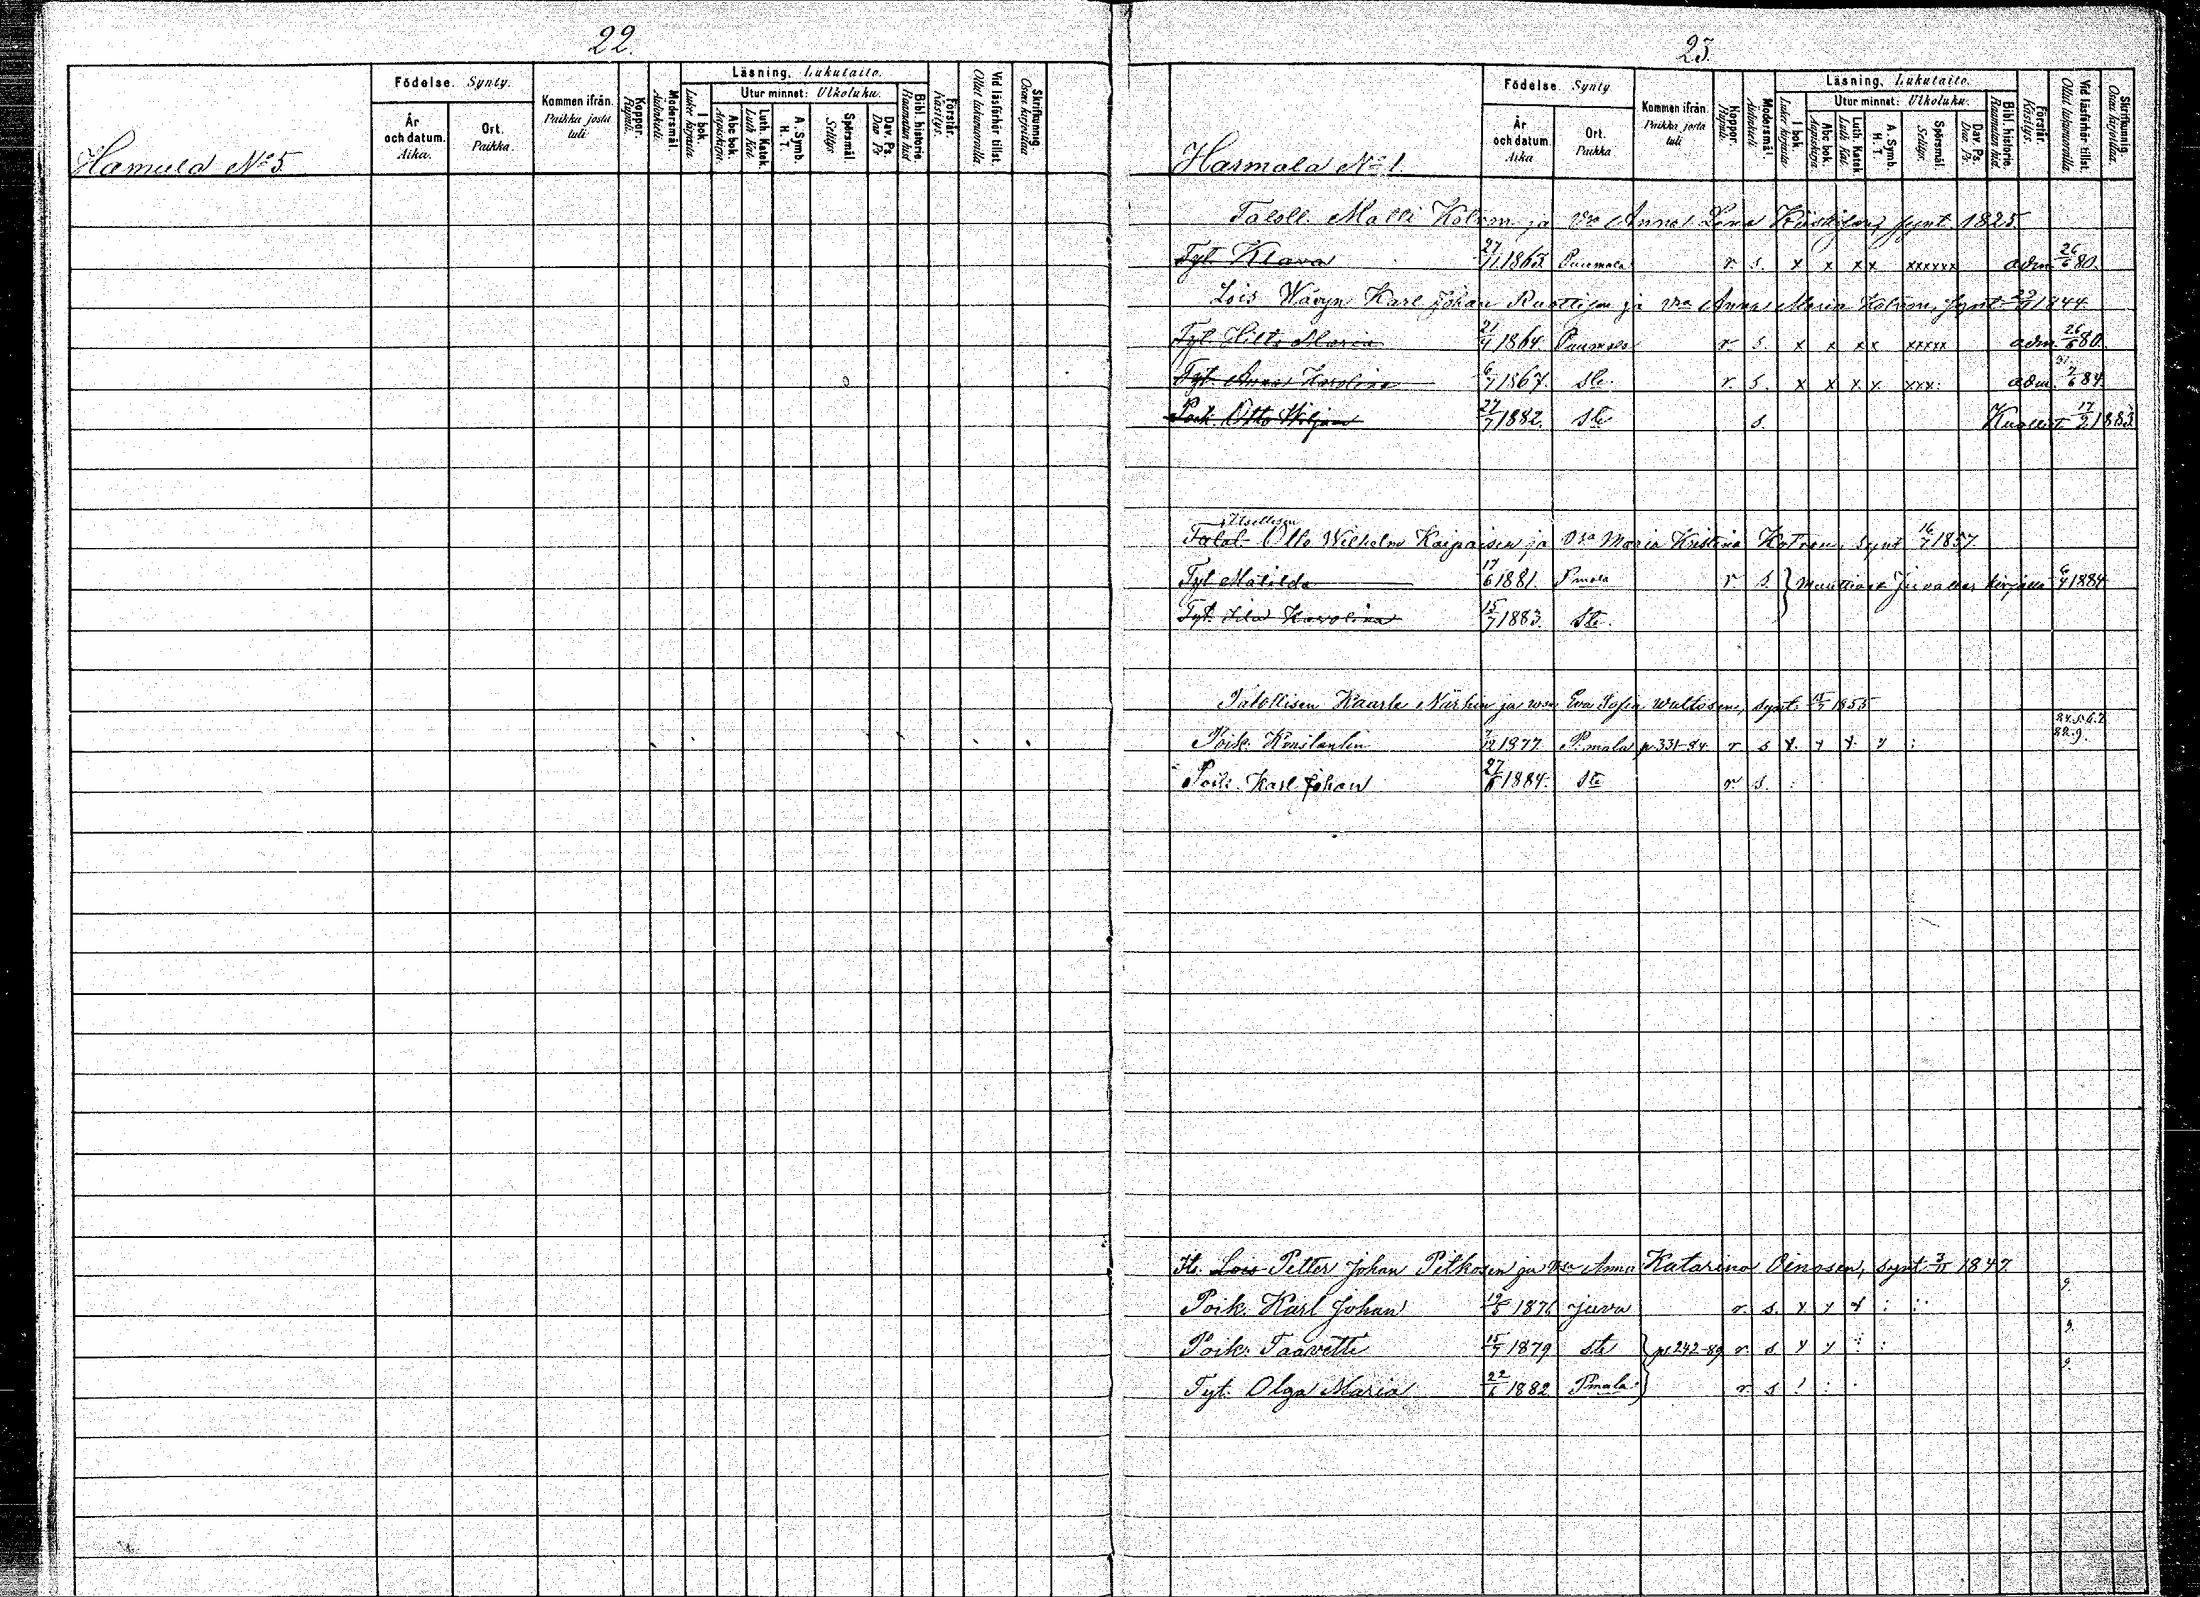 22.
Läsning. Lukutaito.
Födelse. Synty.
Utur minnet: Ulkoluku.
Kommen ifrån. Paikka josta tuli
Koppor. Rupuli.
Modersmål. Äidinkieli.
I bok. Lukee kirjasta
Abc bok. Aapiskirja.
Luth. Katek. Luth Kat.
A. Symb. H. T.
Spörsmål. Selitys.
Dav. Ps. Dav. Ps
Bibl. historie. Raamatun hist
Förstår. Käsitys.
Vid läsförhör tillst. Ollut lukunuorilla.
Skrifkunnig. Osaa kirjoittaa
År och datum. Aika.
Ort. Paikka.
Hamula No 5.
23.
Läsning. Lukutaito.
Födelse. Synty
Utur minnet: Ulkoluku.
Kommen ifrån. Paikka josta tuli
Koppor. Rupuli.
Modersmål. Äidinkieli
I bok. Lukee kirjasta
Abc bok. Aapiskirja.
Luth. Katek. Luth. Kat.
A. Symb. H. T.
Spörsmål. Selitys.
Dav. Ps. Dav. Ps.
Bibl. historie. Raamatun hist
Förstår. Käsitys.
Vid läsförhör tillst. Ollut lukunuorilla.
Skrifkunnig. Osaa kirjoittaa
År och datum. Aika
Ort. Paikka
Harmala No 1.
Taloll. Matti Kotron ja vsa Anna Lena synt. 1825.
Tyt. Klara 27/11 1863. Puumala r s. x x x x xxxxxx adm. 26/6 80.
Lois Karl Johan Ruottisen ja vsa Anna Maria Kotron, synt. 1844
Tyt. Hilta Maria 21/4 1864. Puumala r s. x x x x xxxxx adm. 26/6 80.
Tyt. Anna Karolina 6/7 1867. Ste. r s. x x x x xxx. adm. 7/6 84.
Poik. Otto Wiljam 27/7 1882. Ste s. Kuollut 17/2 1883.
Itsellisen
Talol. Otto Wilhelm Kaipaisen ja vsa Maria Kristina Kotron, synt 16/7 1857.
Tyt Matilda 17/6 1881. Pmala r s. } Muuttivat Juvallen kirjalla 6/4 1884
Tyt. Karolina 15/7 1883. Ste.
Talollisen Kaarle Närhin ja vsan Eva Sofia Waltosen, synt. 1855
84.5.6.7.
88.9.
Poik. Konstantin 7/12 1877. P.mala p.331-84. r s x. x x. x :
Poik. Karl Johan 27/6 1884. Ste r s. :
Its. Lois Petter Johan Pitkosen ja vsa Anna Katarina Oinosen, synt. 3/11 1847.
9.
Poik. Karl Johan 19/5 1876 Juva r. s. x x x : :·
9.
Poik. Taavetti 15/7 1879 Ste } pr.242-89 r s x x : :
9.
Tyt. Olga Maria 22/6 1882 Pmala r. s ! : ·